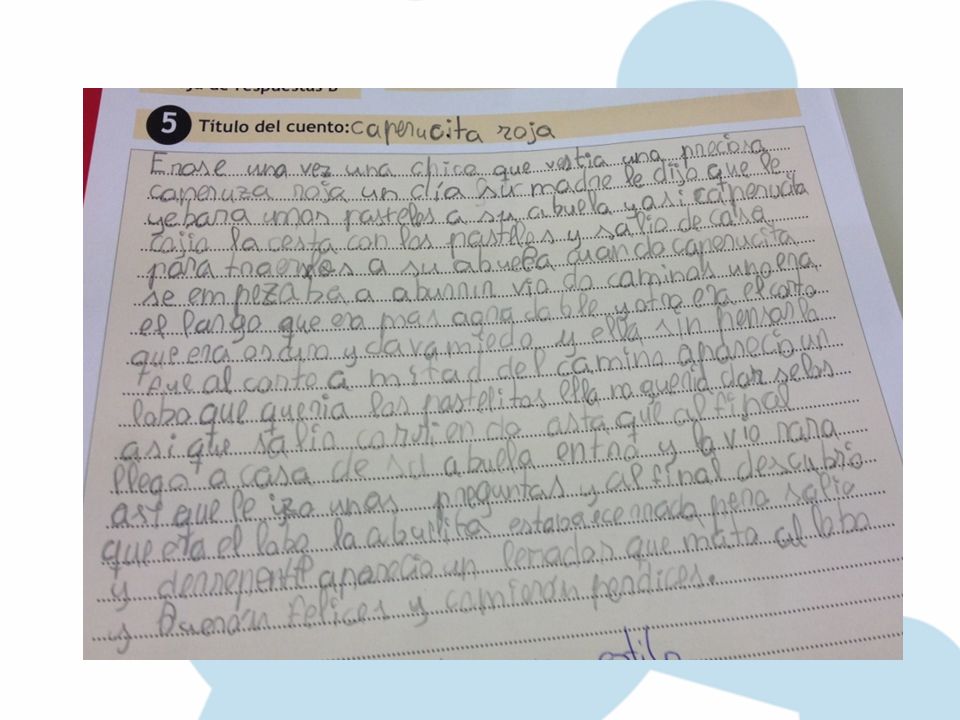 ja de respuestas B
5 Título del cuento: caperucita roja
Erase una vez una chica que vestia una preciosa
caperuza roja un día su madre le dijo que le
yebara unos pasteles a su abuela y asi caperucita
cojio la cesta con los pasteles y salio de casa
para traerlos a su abuela cuando caperucita
se empezaba a aburrir vio do caminos uno era
el largo que era mas agradable y otro era el corto
que era oscuro y dava miedo y ella sin pensarla
fue al corto a mitad del camino aparecio un
lobo que queria los pastelitos ella no queria dar selos
asi que salio corriendo asta que al final
llego a casa de su abuela entró y la vio rara
asi que le izo unas preguntas y al final descubrio
que era el lobo la abuelita estaba ecerrada pero salio
y derrepente aparecio un leñador que mata al lobo
y fueron felices y comieron perdices.
estilo